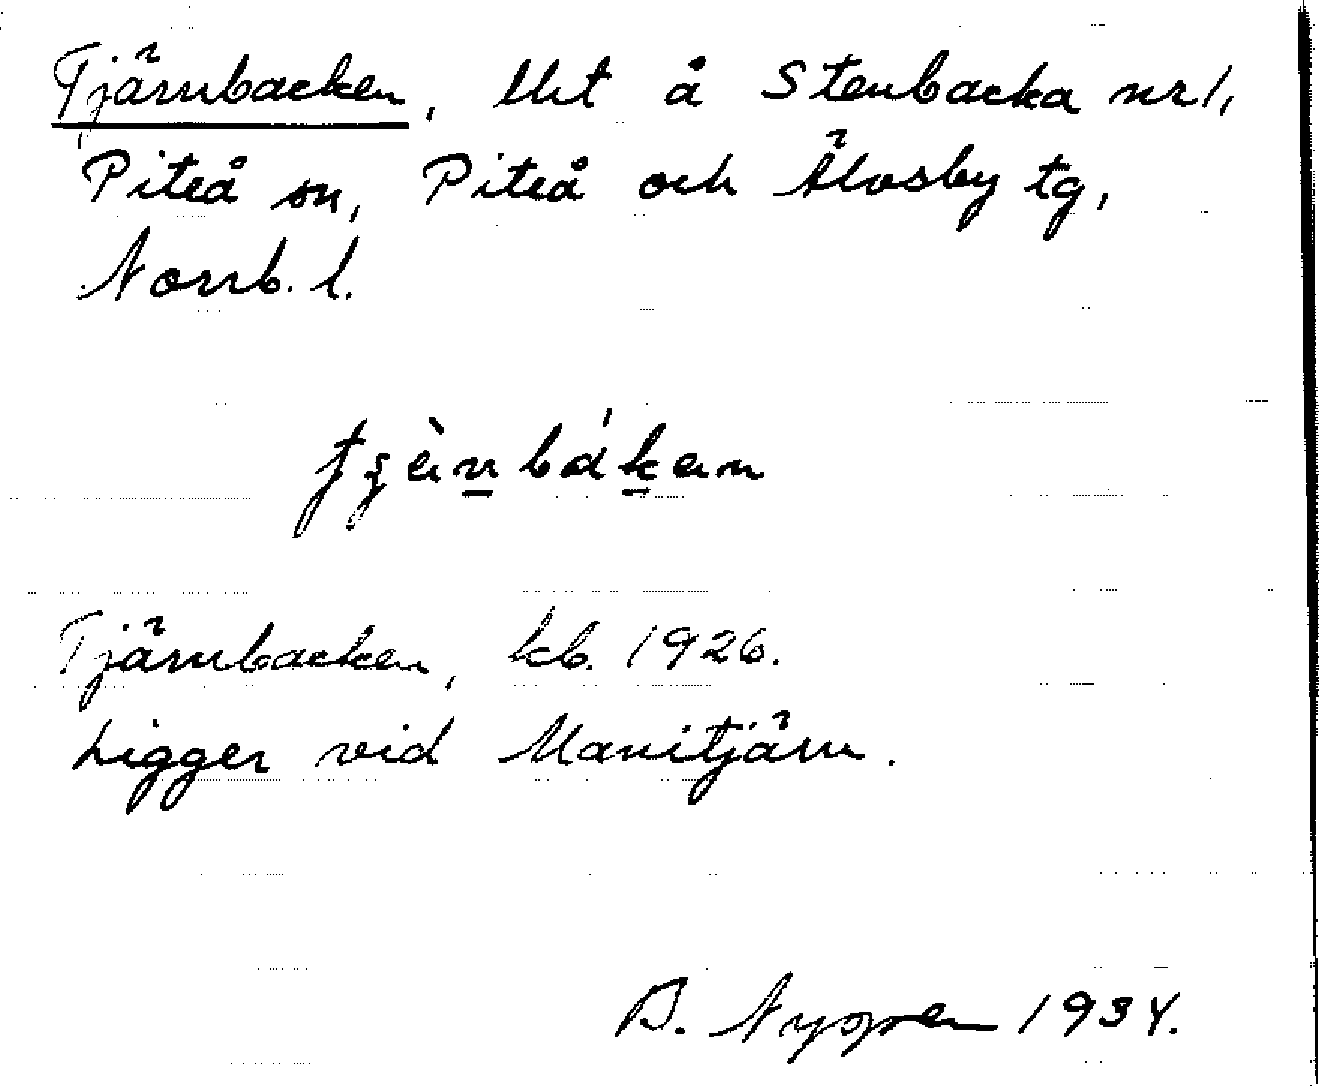 Tjärnbacken, lht å Stenbacka nr 1,
Piteå sn, Piteå och Älvsby tg,
Norrb. l.
Tjärnbacken, kb. 1926.
Ligger vid Manitjärn.
B. Nygren 1934.